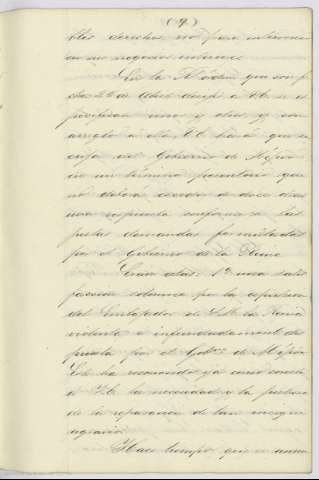 (9.)
tes derechos, no para intervenir
en sus negocios internos.
En la R. orden que con f
cha 22 de Abril dirijí a V. E. se es
pecifican unos y otros y con
arreglo a ella V. E. hará que se
exija del Gobierno de Méjico
en un término perentorio que
no deberá exceder de doce dias
una respuesta conforme a las
justas demandas formuladas
por el Gobierno de la Reina
Eran estas: 1ª una satis
faccion solemne por la espulsion
del Embajador de S. M. la Reina
violenta é infundadamente de
puesta por el Gob.no de Méjico
a V. E. la necesidad y la justicia
de la reparacion de tan insigne
agravio.
Hace tiempo que se anun